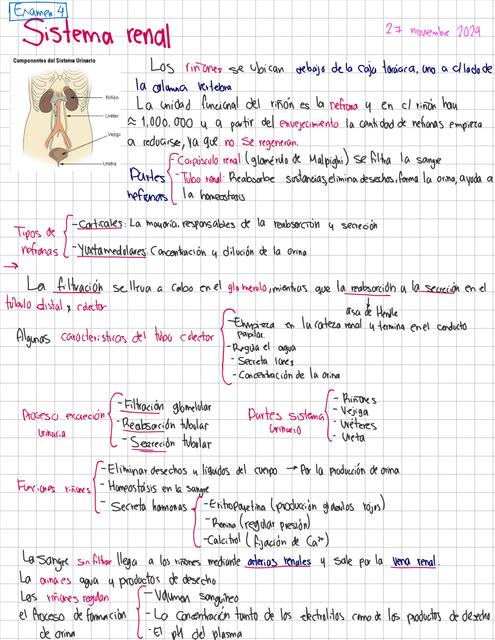 Examen 4
Sistema renal
27 noviembre 2024
Componentes del Sistema Urinario
Riñón
Uréter
Vejiga
Uretra
Los riñones se ubican debajo de la caja toracica, uno a c/lado de
la columna vertebra
La unidad funcional del riñón es la nefrona y en c/ riñón hay
≈ 1,000,000 y a partir del envejecimiento la cantidad de nefronas empieza
a reducirse, ya que no se regeneran.
Partes nefronas
- Corpúsculo renal (glomérulo de Malpighi) se filtra la sangre
- Tubo renal: Reabsorbe sustancias, elimina desechos, forma la orina, ayuda a
la homeostasis
Tipos de nefronas
- Corticales: La mayoría, responsables de la reabsorción y secreción
- Yuxtamedulares: Concentración y dilución de la orina
→
La filtración se lleva a cabo en el glomerulo, mientras que la reabsorción y la secreción en el
túbulo distal y colector
asa de Henle
Algunas caracteristicas del tubo colector
- Empieza en la corteza renal y termina en el conducto
papilar
- Regula el agua
- Secreta iones
- Concentración de la orina
Proceso excreción urinaria
- Filtración glomelular
- Reabsorción tubular
- Secreción tubular
Partes sistema urinario
- Riñones
- Vejiga
- Uréteres
- Ureta
Funciones riñones
- Eliminar desechos y liquidos del cuerpo → Por la producción de orina
- Homeostásis en la sangre
- Secreta hormonas
- Eritropoyetina (producción glóbulos rojos)
- Renina (regular presión)
- Calcitrol (fijación de Ca²⁺)
La sangre sin filtrar llega a los riñones mediante arterias renales y sale por la vena renal.
La orina es agua y productos de desecho
Los riñones regulan
el proceso de formación
de orina
- Volumen sanguíneo
- La concentración tanto de los electrolitos como de los productos de desecho
- El pH del plasma